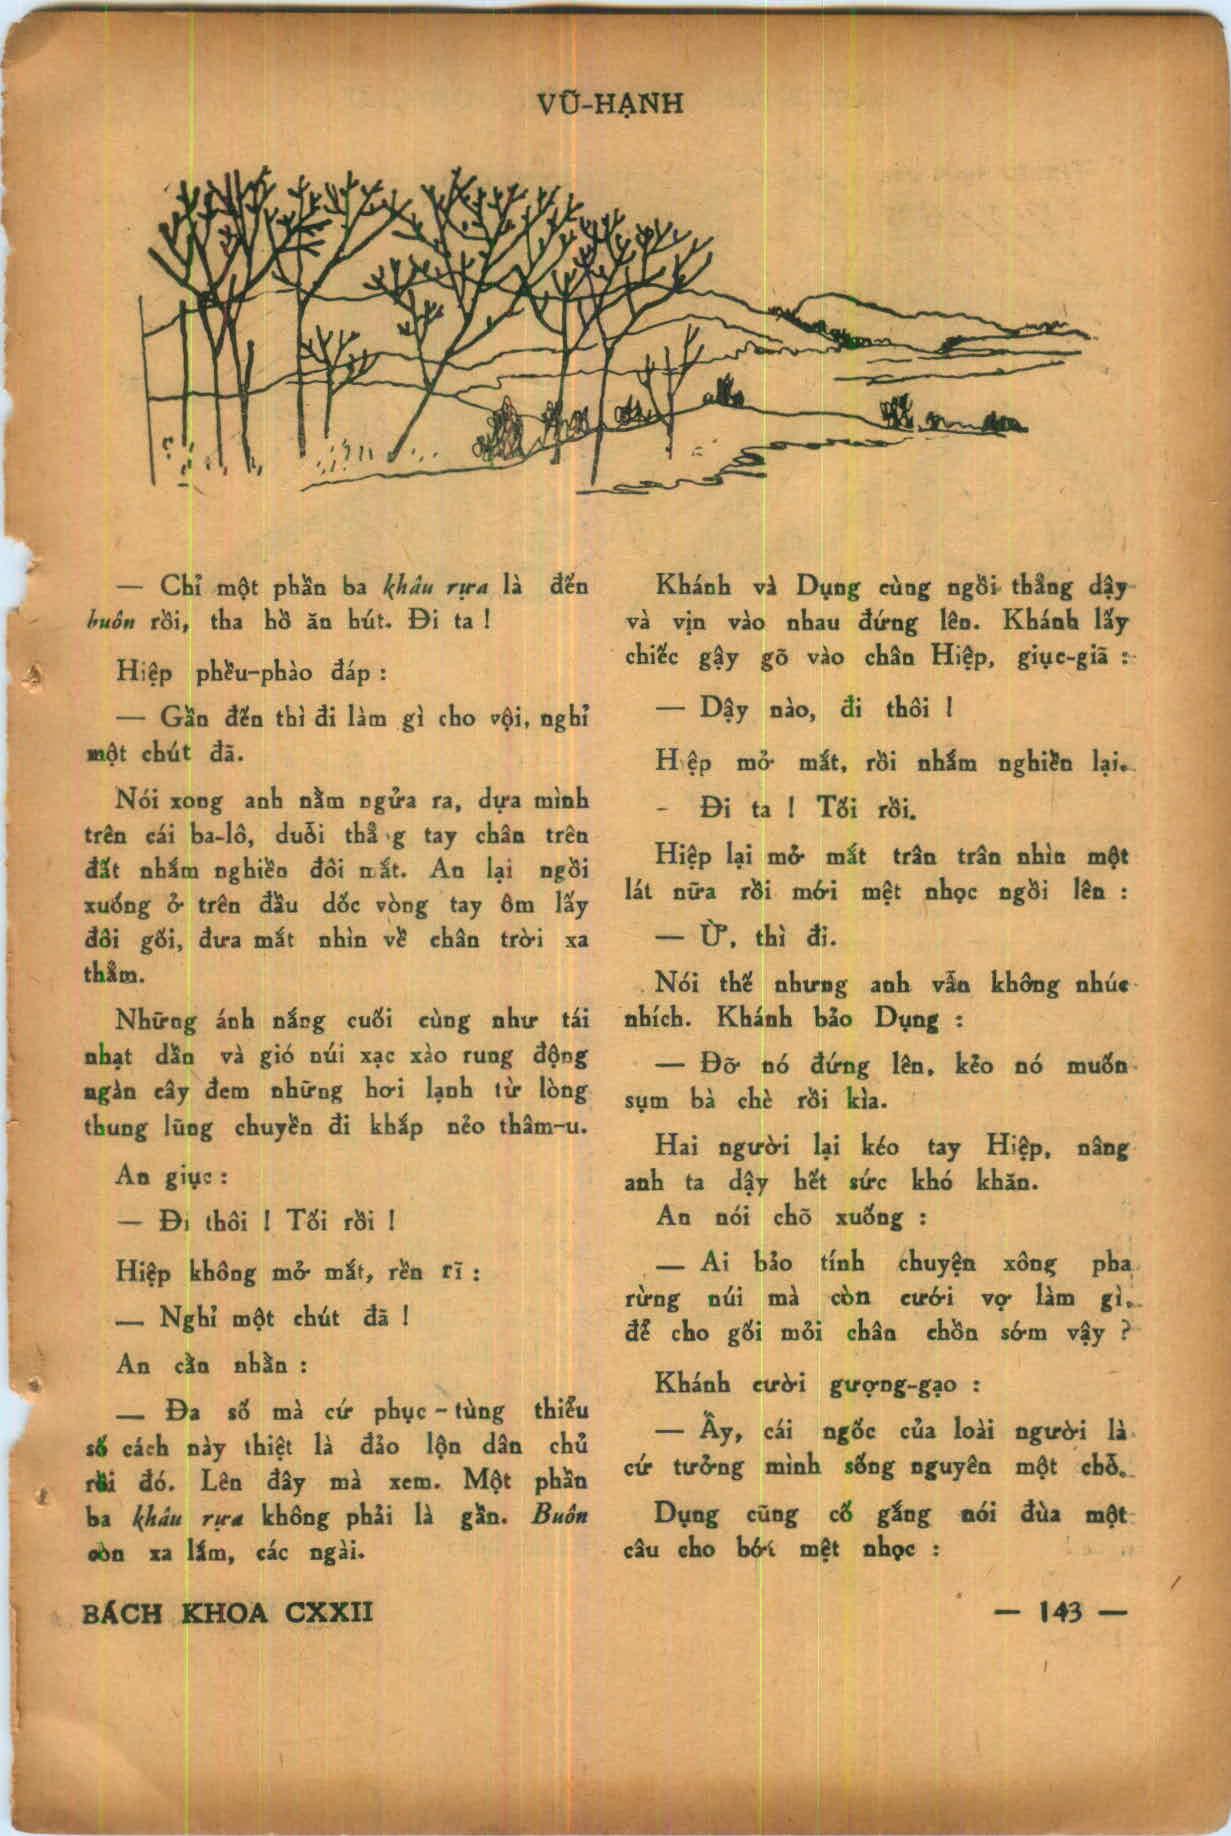 VŨ-HẠNH
— Chỉ một phần ba khâu rựa là đến
buôn rồi, tha hồ ăn hút. Đi ta !
Hiệp phều-phào đáp :
— Gần đến thì đi làm gì cho vội, nghỉ
một chút đã.
Nói xong anh nằm ngửa ra, dựa mình
trên cái ba-lô, duỗi thẳng tay chân trên
đất nhắm nghiền đôi mắt. An lại ngồi
xuống ở trên đầu dốc vòng tay ôm lấy
đôi gối, đưa mắt nhìn về chân trời xa
thẳm.
Những ánh nắng cuối cùng như tái
nhạt dần và gió núi xạc xào rung động
ngàn cây đem những hơi lạnh từ lòng
thung lũng chuyền đi khắp nẻo thâm-u.
An giục :
— Đi thôi ! Tối rồi !
Hiệp không mở mắt, rền rĩ :
— Nghỉ một chút đã !
An cằn nhằn :
— Đa số mà cứ phục-tùng thiểu
số cách này thiệt là đảo lộn dân chủ
rồi đó. Lên đây mà xem. Một phần
ba khâu rựa không phải là gần. Buôn
còn xa lắm, các ngài.
Khánh và Dụng cùng ngồi thẳng dậy
và vịn vào nhau đứng lên. Khánh lấy
chiếc gậy gõ vào chân Hiệp, giục-giã :
— Dậy nào, đi thôi !
Hiệp mở mắt, rồi nhắm nghiền lại.
- Đi ta ! Tối rồi.
Hiệp lại mở mắt trân trân nhìn một
lát nữa rồi mới mệt nhọc ngồi lên :
— Ừ, thì đi.
Nói thế nhưng anh vẫn không nhúc
nhích. Khánh bảo Dụng :
— Đỡ nó đứng lên, kẻo nó muốn
sụm bà chè rồi kìa.
Hai người lại kéo tay Hiệp, nâng
anh ta dậy hết sức khó khăn.
An nói chõ xuống :
— Ai bảo tính chuyện xông pha
rừng núi mà còn cưới vợ làm gì,
để cho gối mỏi chân chồn sớm vậy ?
Khánh cười gượng-gạo :
— Ầy, cái ngốc của loài người là
cứ tưởng mình sống nguyên một chỗ.
Dụng cũng cố gắng nói đùa một
câu cho bớt mệt nhọc :
BÁCH KHOA CXXII
— 143 —